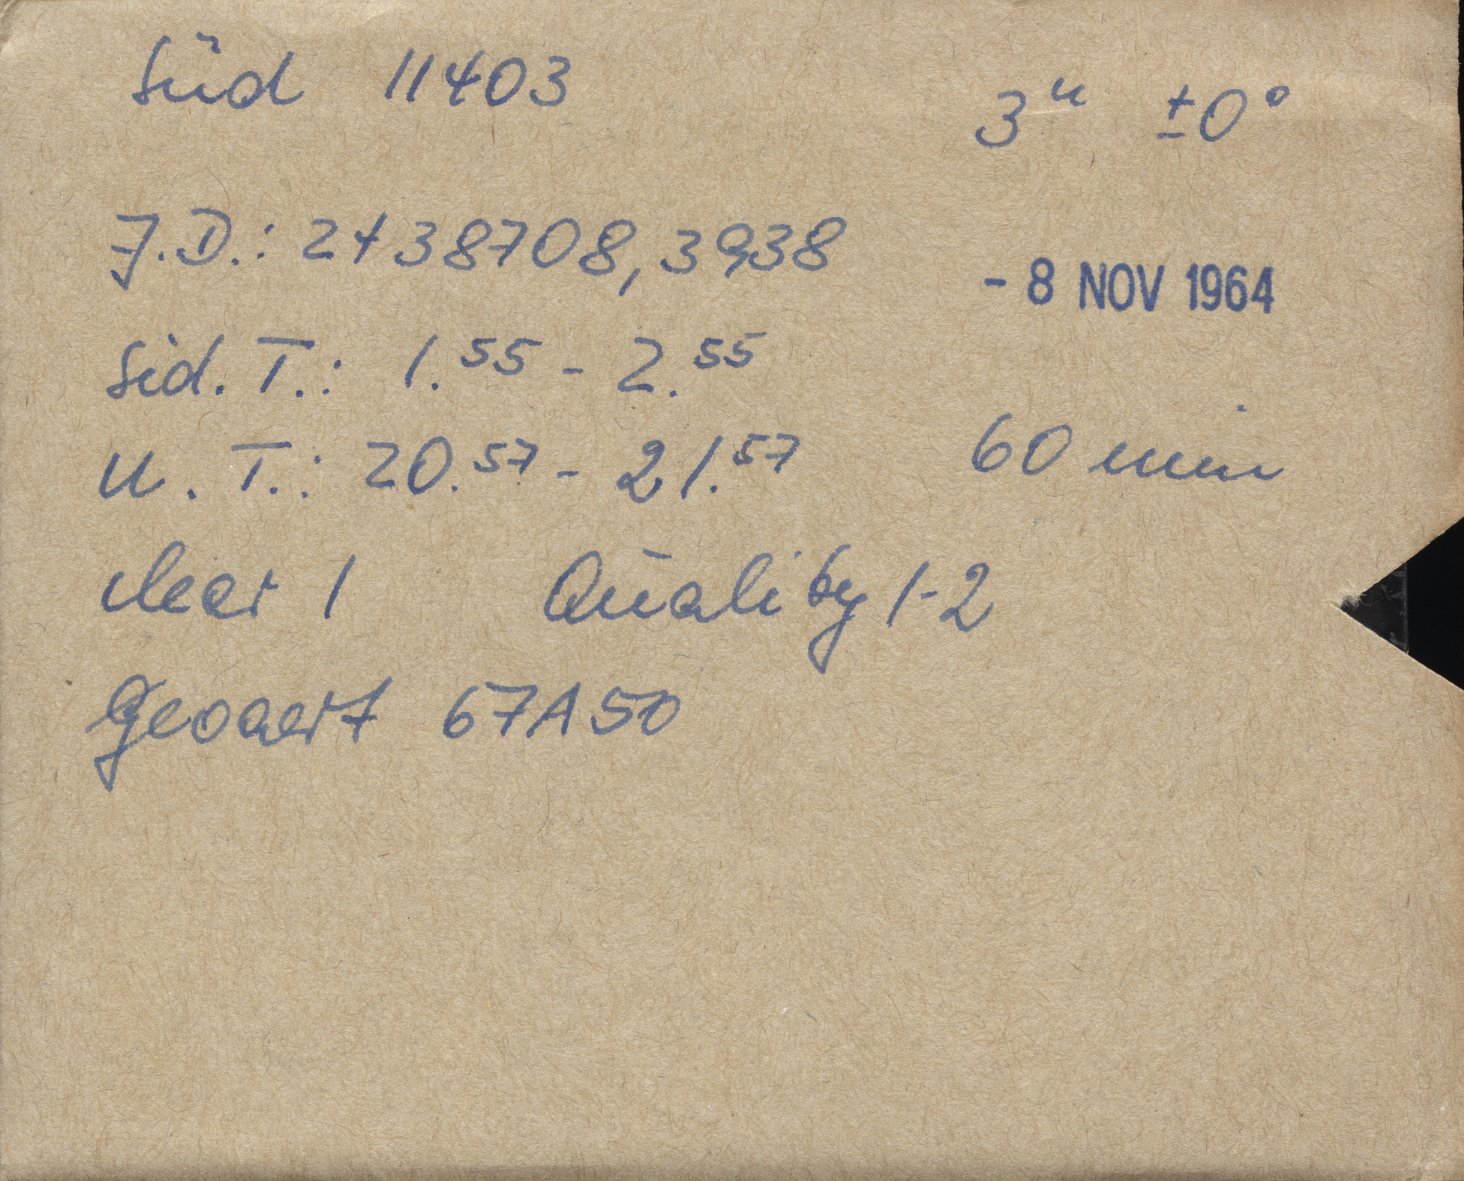 Süd 11403 3ᵘ ±0°
J.D.: 2438708,3938
- 8 NOV 1964
Sid. T.: 1.⁵⁵ - 2.⁵⁵
U. T.: 20.⁵⁷ - 21.⁵⁷ 60 min
clear 1 Quality 1-2
Gevaert 67A50